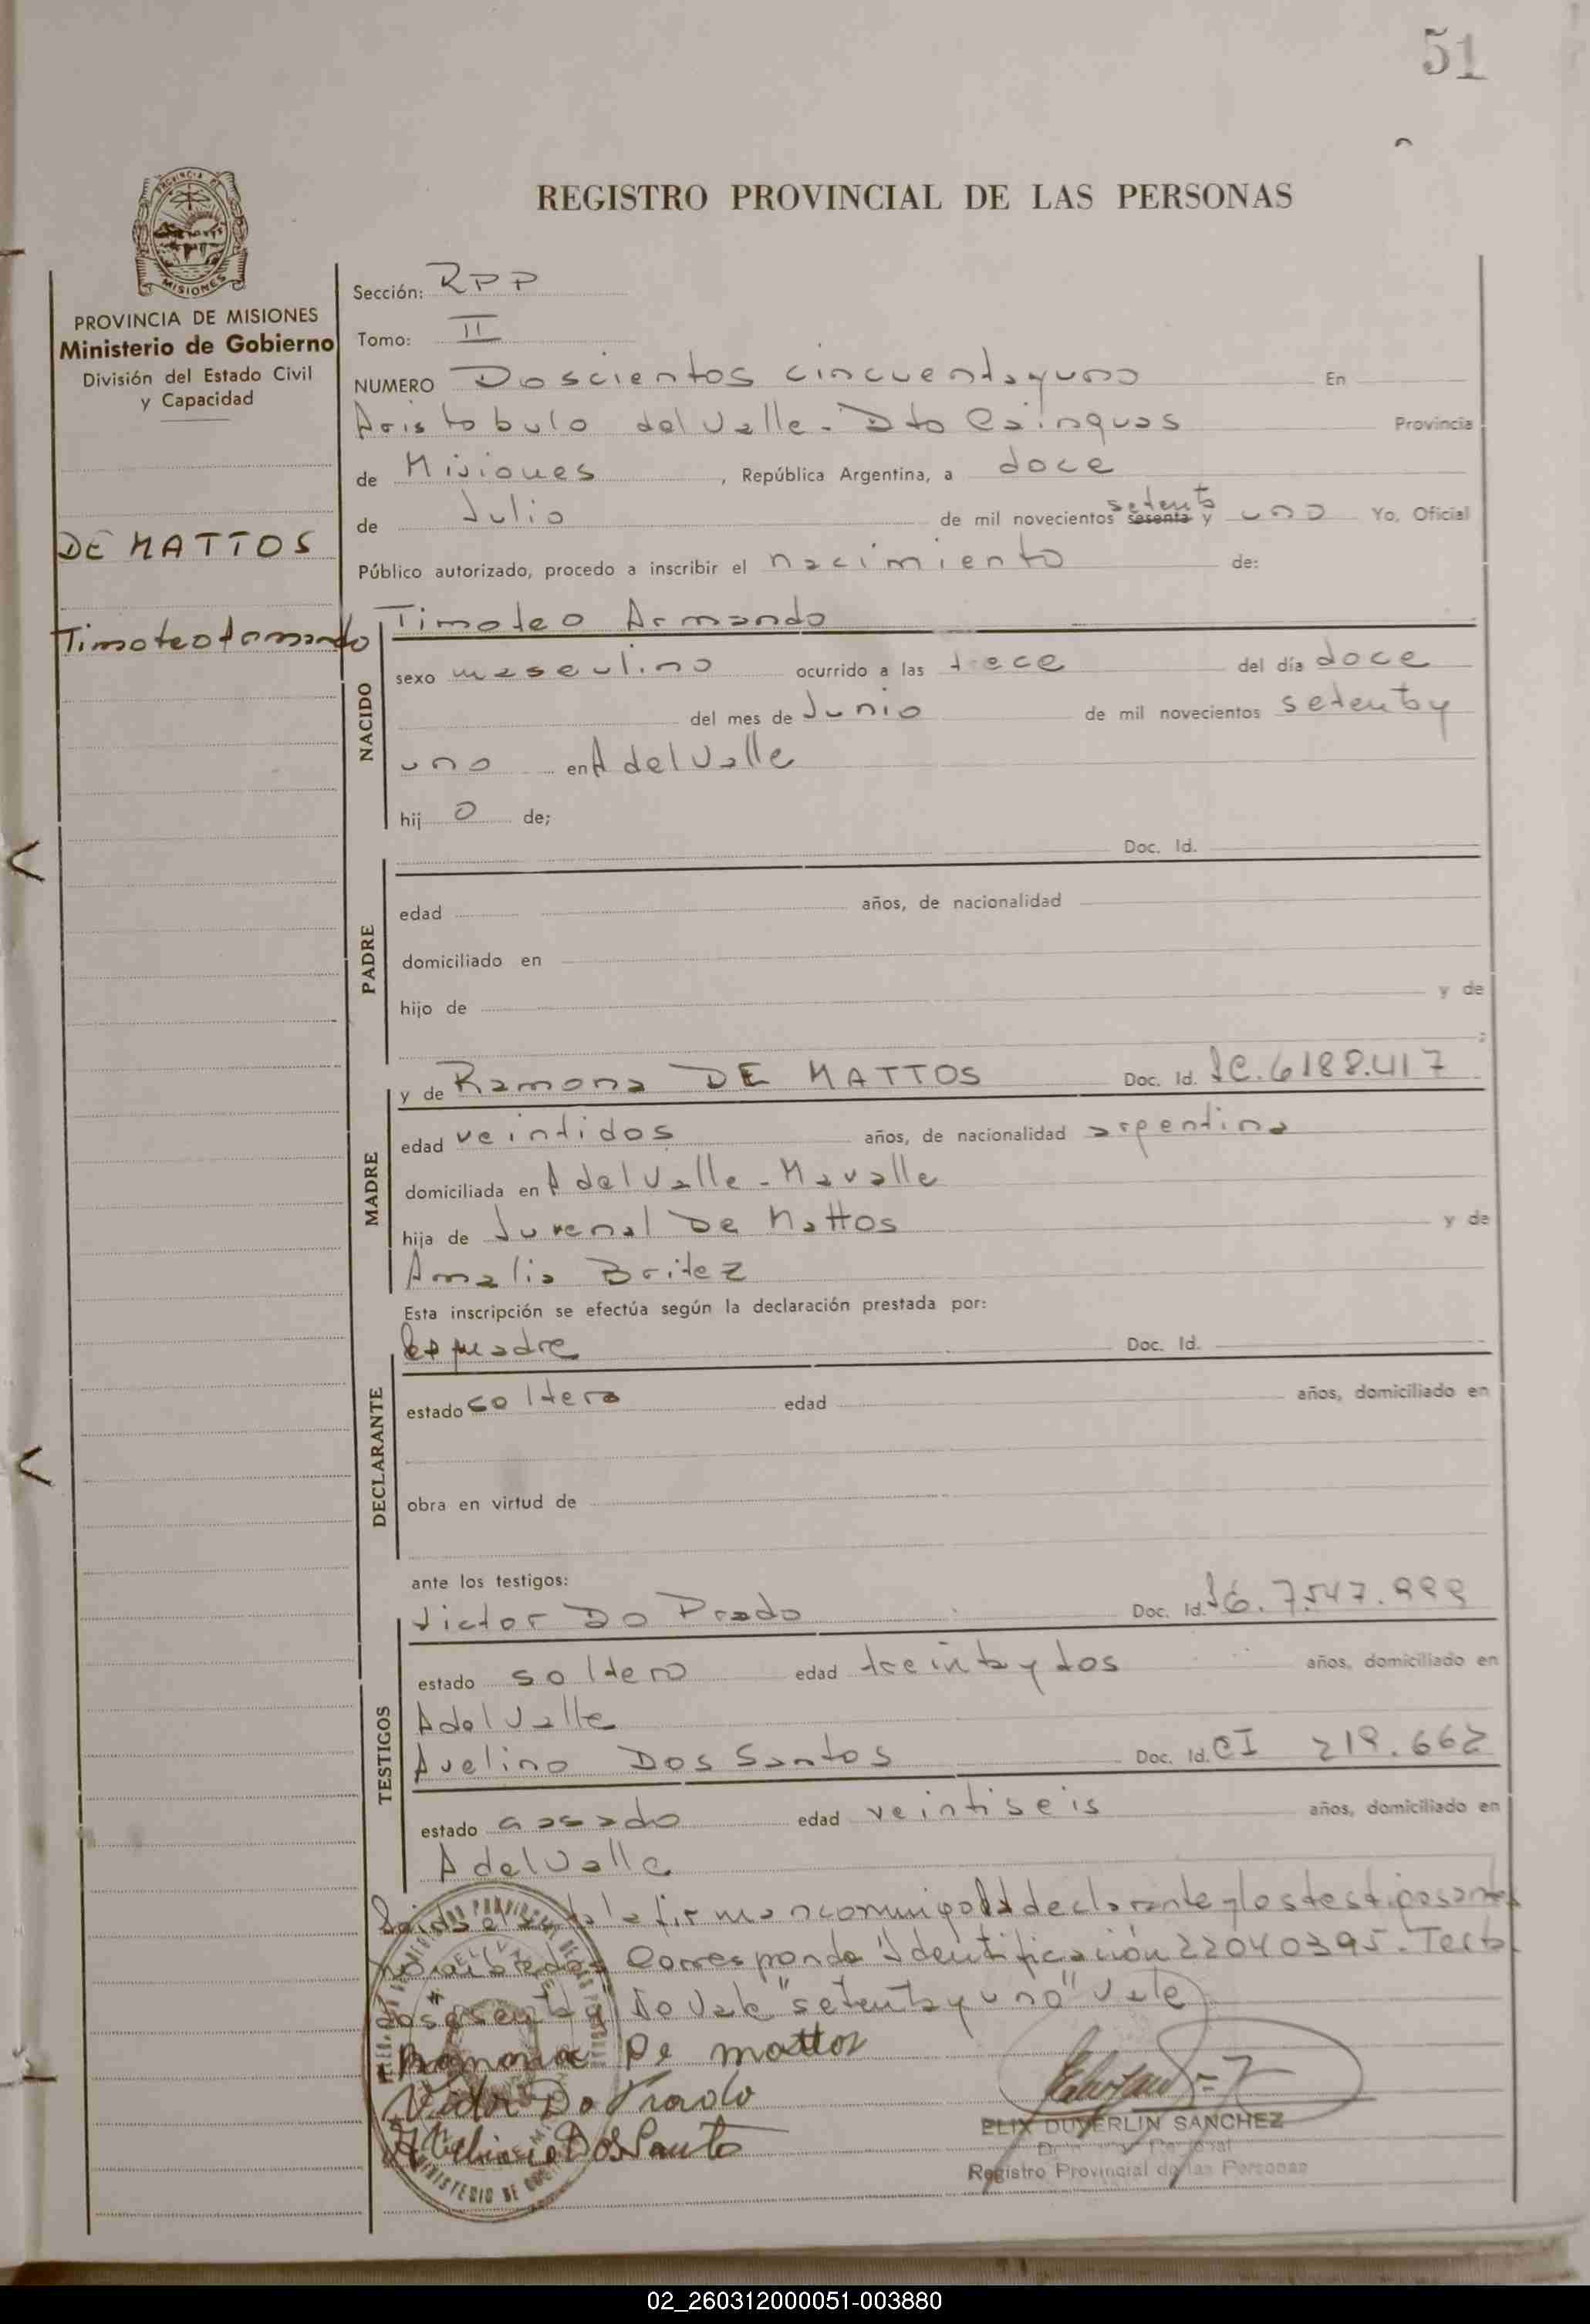 51
PROVINCIA DE
MISIONES
REGISTRO PROVINCIAL DE LAS PERSONAS
PROVINCIA DE MISIONES
Ministerio de Gobierno
División del Estado Civil
y Capacidad
DE MATTOS
Timoteo Armando
Sección: RPP
Tomo: II
NUMERO Doscientos cincuentayuno En
Aristobulo del Valle. Dto Cainguas Provincia
de Misiones, República Argentina, a doce
de Julio de mil novecientos sesenta setenta y uno Yo, Oficial
Público autorizado, procedo a inscribir el nacimiento de:
NACIDO
Timoteo Armando
sexo masculino ocurrido a las trece del día doce
del mes de Junio de mil novecientos setentay
uno en A del Valle
hij o de;
PADRE
Doc. Id.
edad años, de nacionalidad
domiciliado en
hijo de y de
;
MADRE
y de Ramona DE MATTOS Doc. Id. LC. 6188.417
edad veintidos años, de nacionalidad argentina
domiciliada en A del Valle - Mavalle
hija de Juvenal De Mattos y de
Amalia Britez
Esta inscripción se efectúa según la declaración prestada por:
DECLARANTE
madre Doc. Id.
estado soltera edad años, domiciliado en
obra en virtud de
ante los testigos:
TESTIGOS
Victor Do Prado Doc. Id. 7.547.999
estado soltero edad treintaydos años, domiciliado en
A del Valle
Avelino Dos Santos Doc. Id. CI 219.662
estado casado edad veintiseis años, domiciliado en
A del Valle
Leida el acta la firman conmigo la declarante y los testigos antes
Corresponde Identificación 22040395. Testa
do "sesenta" No Vale "setenta y uno" Vale
Ramona De mattos
Victor Do Prado
Dos Santos
ELIX DUVERLIN SANCHEZ
Registro Provincial de las Personas
02_260312000051-003880